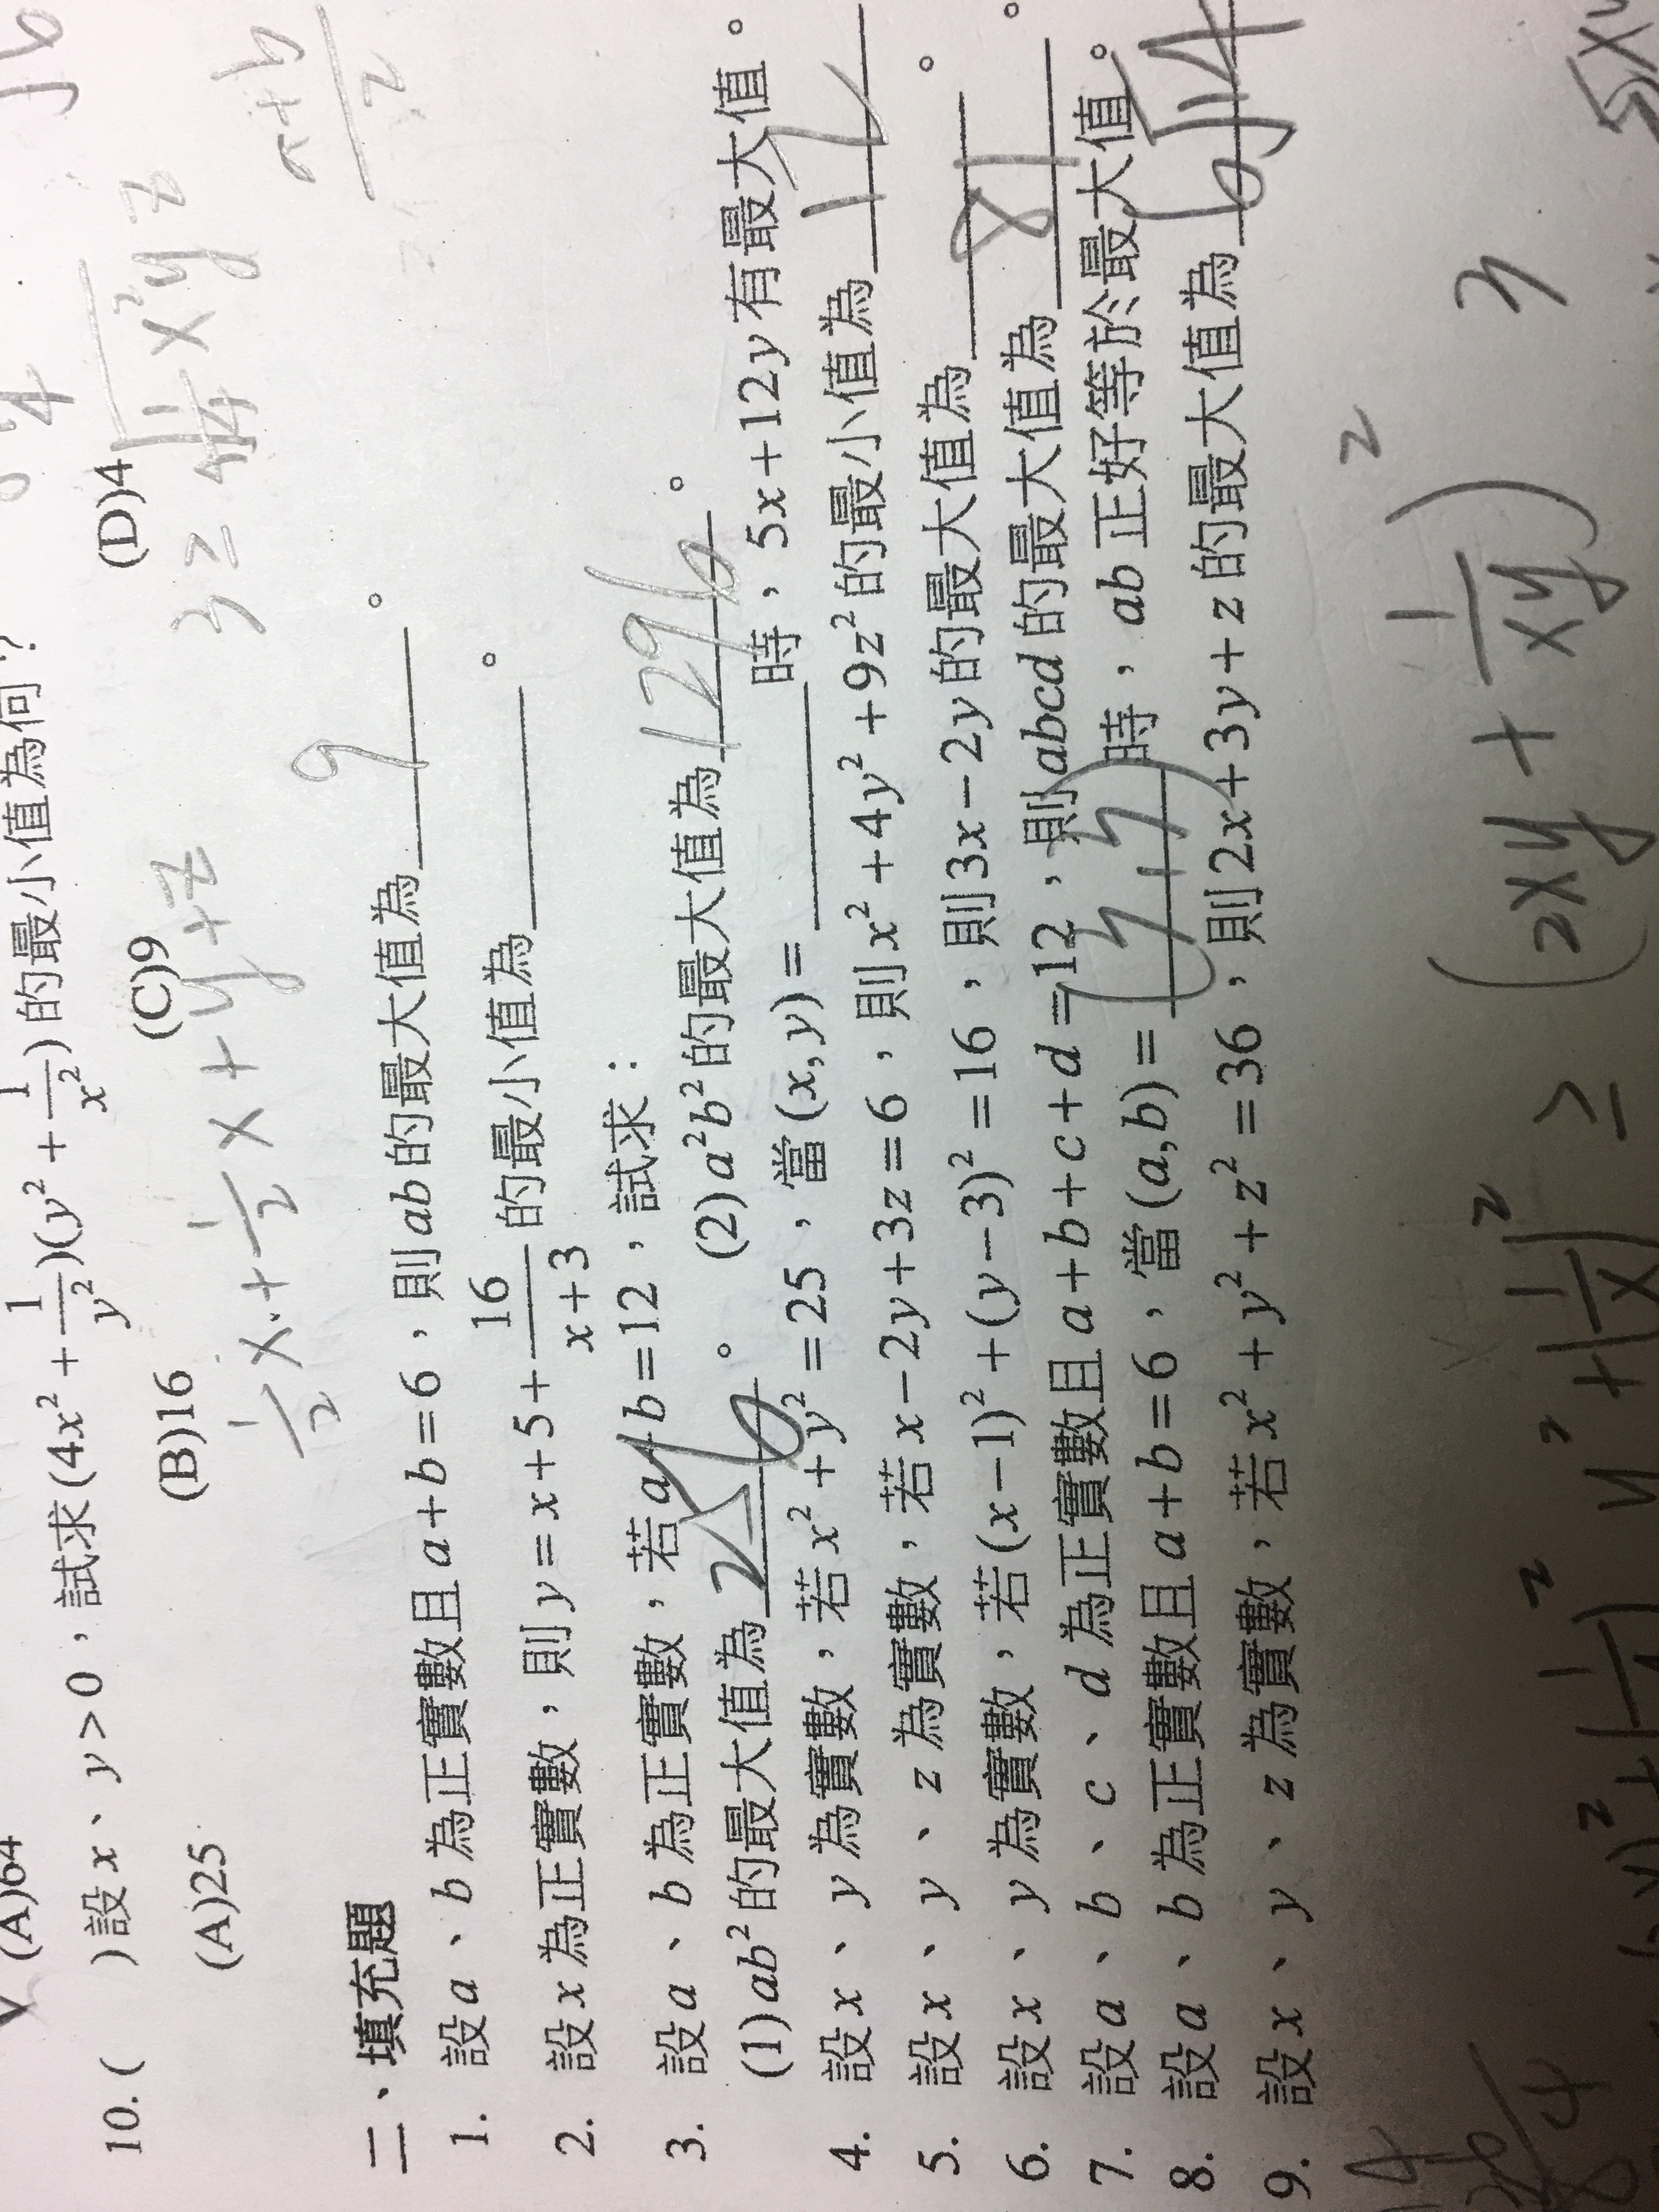 (A)64
10. ( )設x、y>0，試求(4x²+1/y²)(y²+1/x²)的最小值為何？
(A)25 (B)16 (C)9 (D)4
1/2 x + 1/2 x + y + z
3 ≥
a+b
2
二、填充題
1. 設a、b為正實數且a+b=6，則ab的最大值為 9 。
2. 設x為正實數，則y=x+5+16/x+3的最小值為______。
3. 設a、b為正實數，若a+b=12，試求：
(1)ab²的最大值為 256 。 (2)a²b²的最大值為 1296 。
4. 設x、y為實數，若x²+y²=25，當(x,y)=______時，5x+12y有最大值。
5. 設x、y、z為實數，若x-2y+3z=6，則x²+4y²+9z²的最小值為 12 。
6. 設x、y為實數，若(x-1)²+(y-3)²=16，則3x-2y的最大值為______。
7. 設a、b、c、d為正實數且a+b+c+d=12，則abcd的最大值為 81 。
8. 設a、b為正實數且a+b=6，當(a,b)=(3,3)時，ab正好等於最大值。
9. 設x、y、z為實數，若x²+y²+z²=36，則2x+3y+z的最大值為 6√14
≥ (2xy + 1/xy)²
3